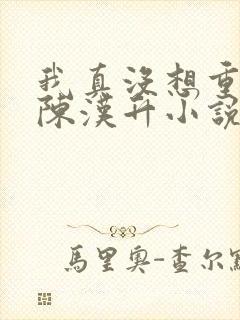 我真沒想重
陳漢升小說
馬里奧-查尔